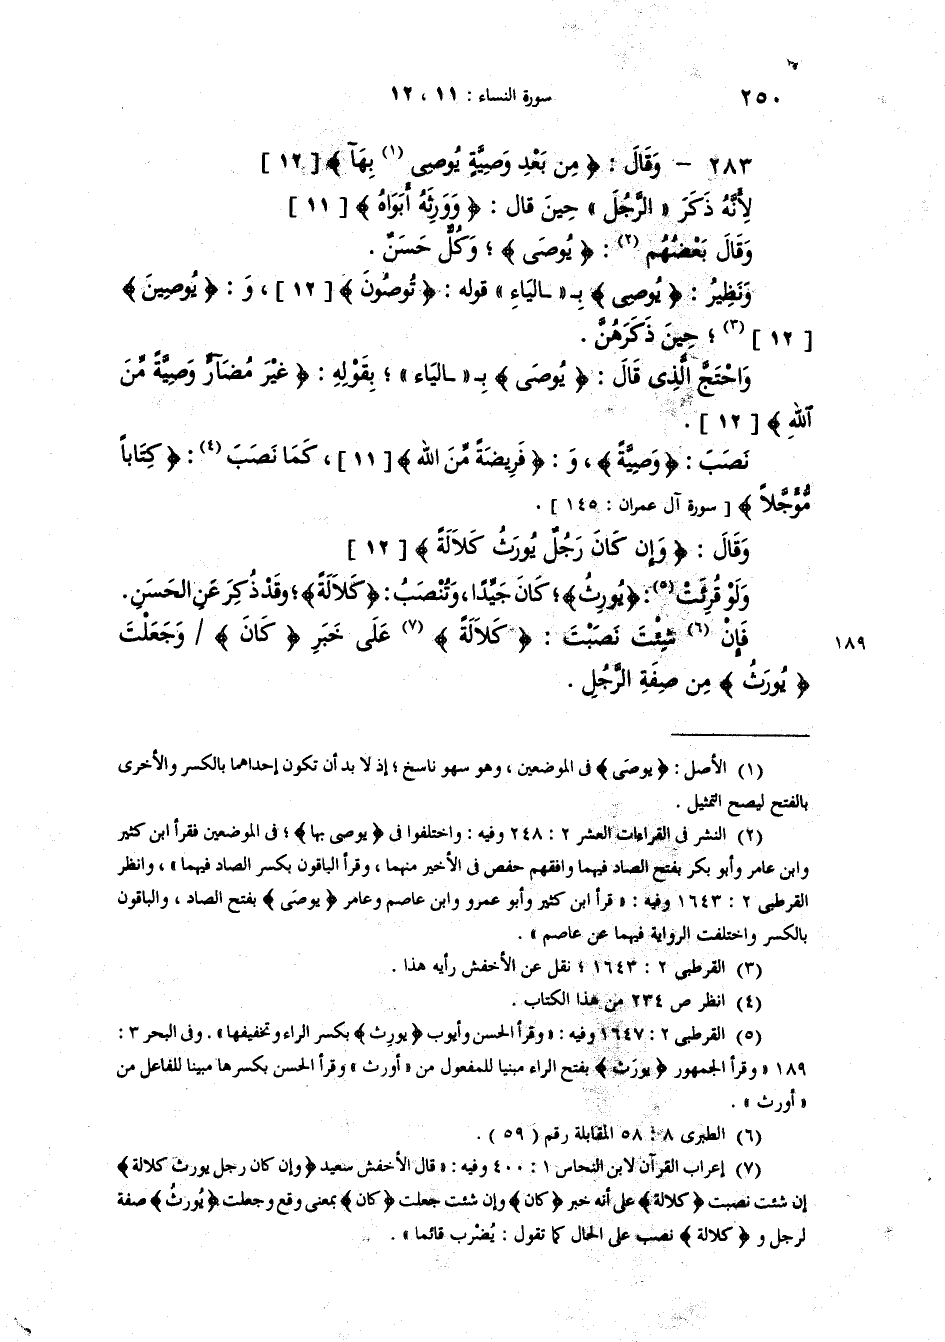 ٢٥٠ سورة النساء : ١١ ، ١٢
٢٨٣ – وَقَالَ : ﴿ مِن بَعْدِ وَصِيَّةٍ يُوصِى (١) بِهَآ ﴾ [ ١٢ ]
لِأَنَّهُ ذَكَرَ « الرَّجُلَ » حِينَ قال : ﴿ وَوَرِثَهُ أَبَوَاهُ ﴾ [ ١١ ]
وَقَالَ بَعْضُهُم (٢) : ﴿ يُوصَى ﴾ ؛ وَكُلٌّ حَسَنٌ .
وَنَظِيرُ : ﴿ يُوصِى ﴾ بِـ« ـاليَاءِ » قوله : ﴿ تُوصُونَ ﴾ [ ١٢ ] ، وَ : ﴿ يُوصِينَ ﴾
[ ١٢ ] (٣) ؛ حِينَ ذَكَرَهُنَّ .
وَاحْتَجَّ الَّذِى قَالَ : ﴿ يُوصَى ﴾ بِـ« ـاليَاء » ؛ بِقَوْلِهِ : ﴿ غَيْرَ مُضَآرٍّ وَصِيَّةً مِّنَ
ٱللهِ ﴾ [ ١٢ ] .
نَصَبَ : ﴿ وَصِيَّةً ﴾ ، وَ : ﴿ فَرِيضَةً مِّنَ الله ﴾ [ ١١ ] ، كَمَا نَصَبَ (٤) : ﴿ كِتَاباً
مُّؤَجَّلاً ﴾ [ سورة آل عمران : ١٤٥ ] .
وَقَالَ : ﴿ وَإِن كَانَ رَجُلٌ يُورَثُ كَلاَلَةً ﴾ [ ١٢ ]
وَلَوْ قُرِئَتْ (٥) : ﴿ يُورِثُ ﴾ ؛ كَانَ جَيِّدًا ، وَتُنْصَبُ : ﴿ كَلاَلَةً ﴾ ؛ وقَدْ ذُكِرَ عَنِ الحَسَنِ .
فَإِنْ (٦) شِئْتَ نَصَبْتَ : ﴿ كَلاَلَةً ﴾ (٧) عَلَى خَبَرِ ﴿ كَانَ ﴾ / وَجَعَلْتَ ١٨٩
﴿ يُورَثُ ﴾ مِن صِفَةِ الرَّجُلِ .
(١) الأصل : ﴿ يوصَى ﴾ فى الموضعين ، وهو سهو ناسخ ؛ إذ لا بد أن تكون إحداهما بالكسر والأخرى
بالفتح ليصح التمثيل .
(٢) النشر فى القراءات العشر ٢ : ٢٤٨ وفيه : واختلفوا فى ﴿ يوصى بها ﴾ ؛ فى الموضعين فقرأ ابن كثير
وابن عامر وأبو بكر بفتح الصاد فيهما وافقهم حفص فى الأخير منهما ، وقرأ الباقون بكسر الصاد فيهما » ، وانظر
القرطبى ٢ : ١٦٤٣ وفيه : « قرأ ابن كثير وأبو عمرو وابن عاصم وعامر ﴿ يوصَى ﴾ بفتح الصاد ، والباقون
بالكسر واختلفت الرواية فيهما عن عاصم » .
(٣) القرطبى ٢ : ١٦٤٣ ؛ نقل عن الأخفش رأيه هذا .
(٤) انظر ص ٢٣٤ من هذا الكتاب .
(٥) القرطبى ٢ : ١٦٤٧ وفيه : « وقرأ الحسن وأيوب ﴿ يورِث ﴾ بكسر الراء وتخفيفها » . وفى البحر ٣ :
١٨٩ « وقرأ الجمهور ﴿ يورَث ﴾ بفتح الراء مبنيا للمفعول من « أورث » وقرأ الحسن بكسرها مبينا للفاعل من
« أورث » .
(٦) الطبرى ٨ : ٥٨ المقابلة رقم ( ٥٩ ) .
(٧) إعراب القرآن لابن النحاس ١ : ٤٠٠ وفيه : « قال الأخفش سعيد ﴿ وإن كان رجل يورث كلالة ﴾
إن شئت نصبت ﴿ كلالة ﴾ على أنه خبر ﴿ كان ﴾ وإن شئت جعلت ﴿ كان ﴾ بمعنى وقع وجعلت ﴿ يُورثُ ﴾ صفة
لرجل و ﴿ كلالة ﴾ نصب على الحال كما تقول : يُضْرب قائما » .